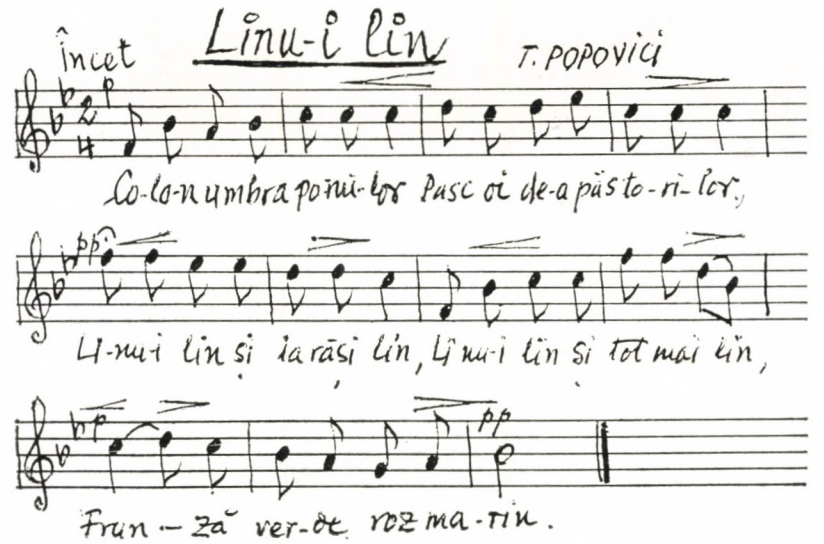 Linu-i lin
Încet
T. POPOVICI
2
4
p
Co-lo-n umbra pomi-lor Pasc oi de-a păsto-ri-lor,
pp
Li-nu-i lin și iarăși lin, Li nu-i lin și tot mai lin,
p
pp
Frun-ză ver-de roz ma-rin.